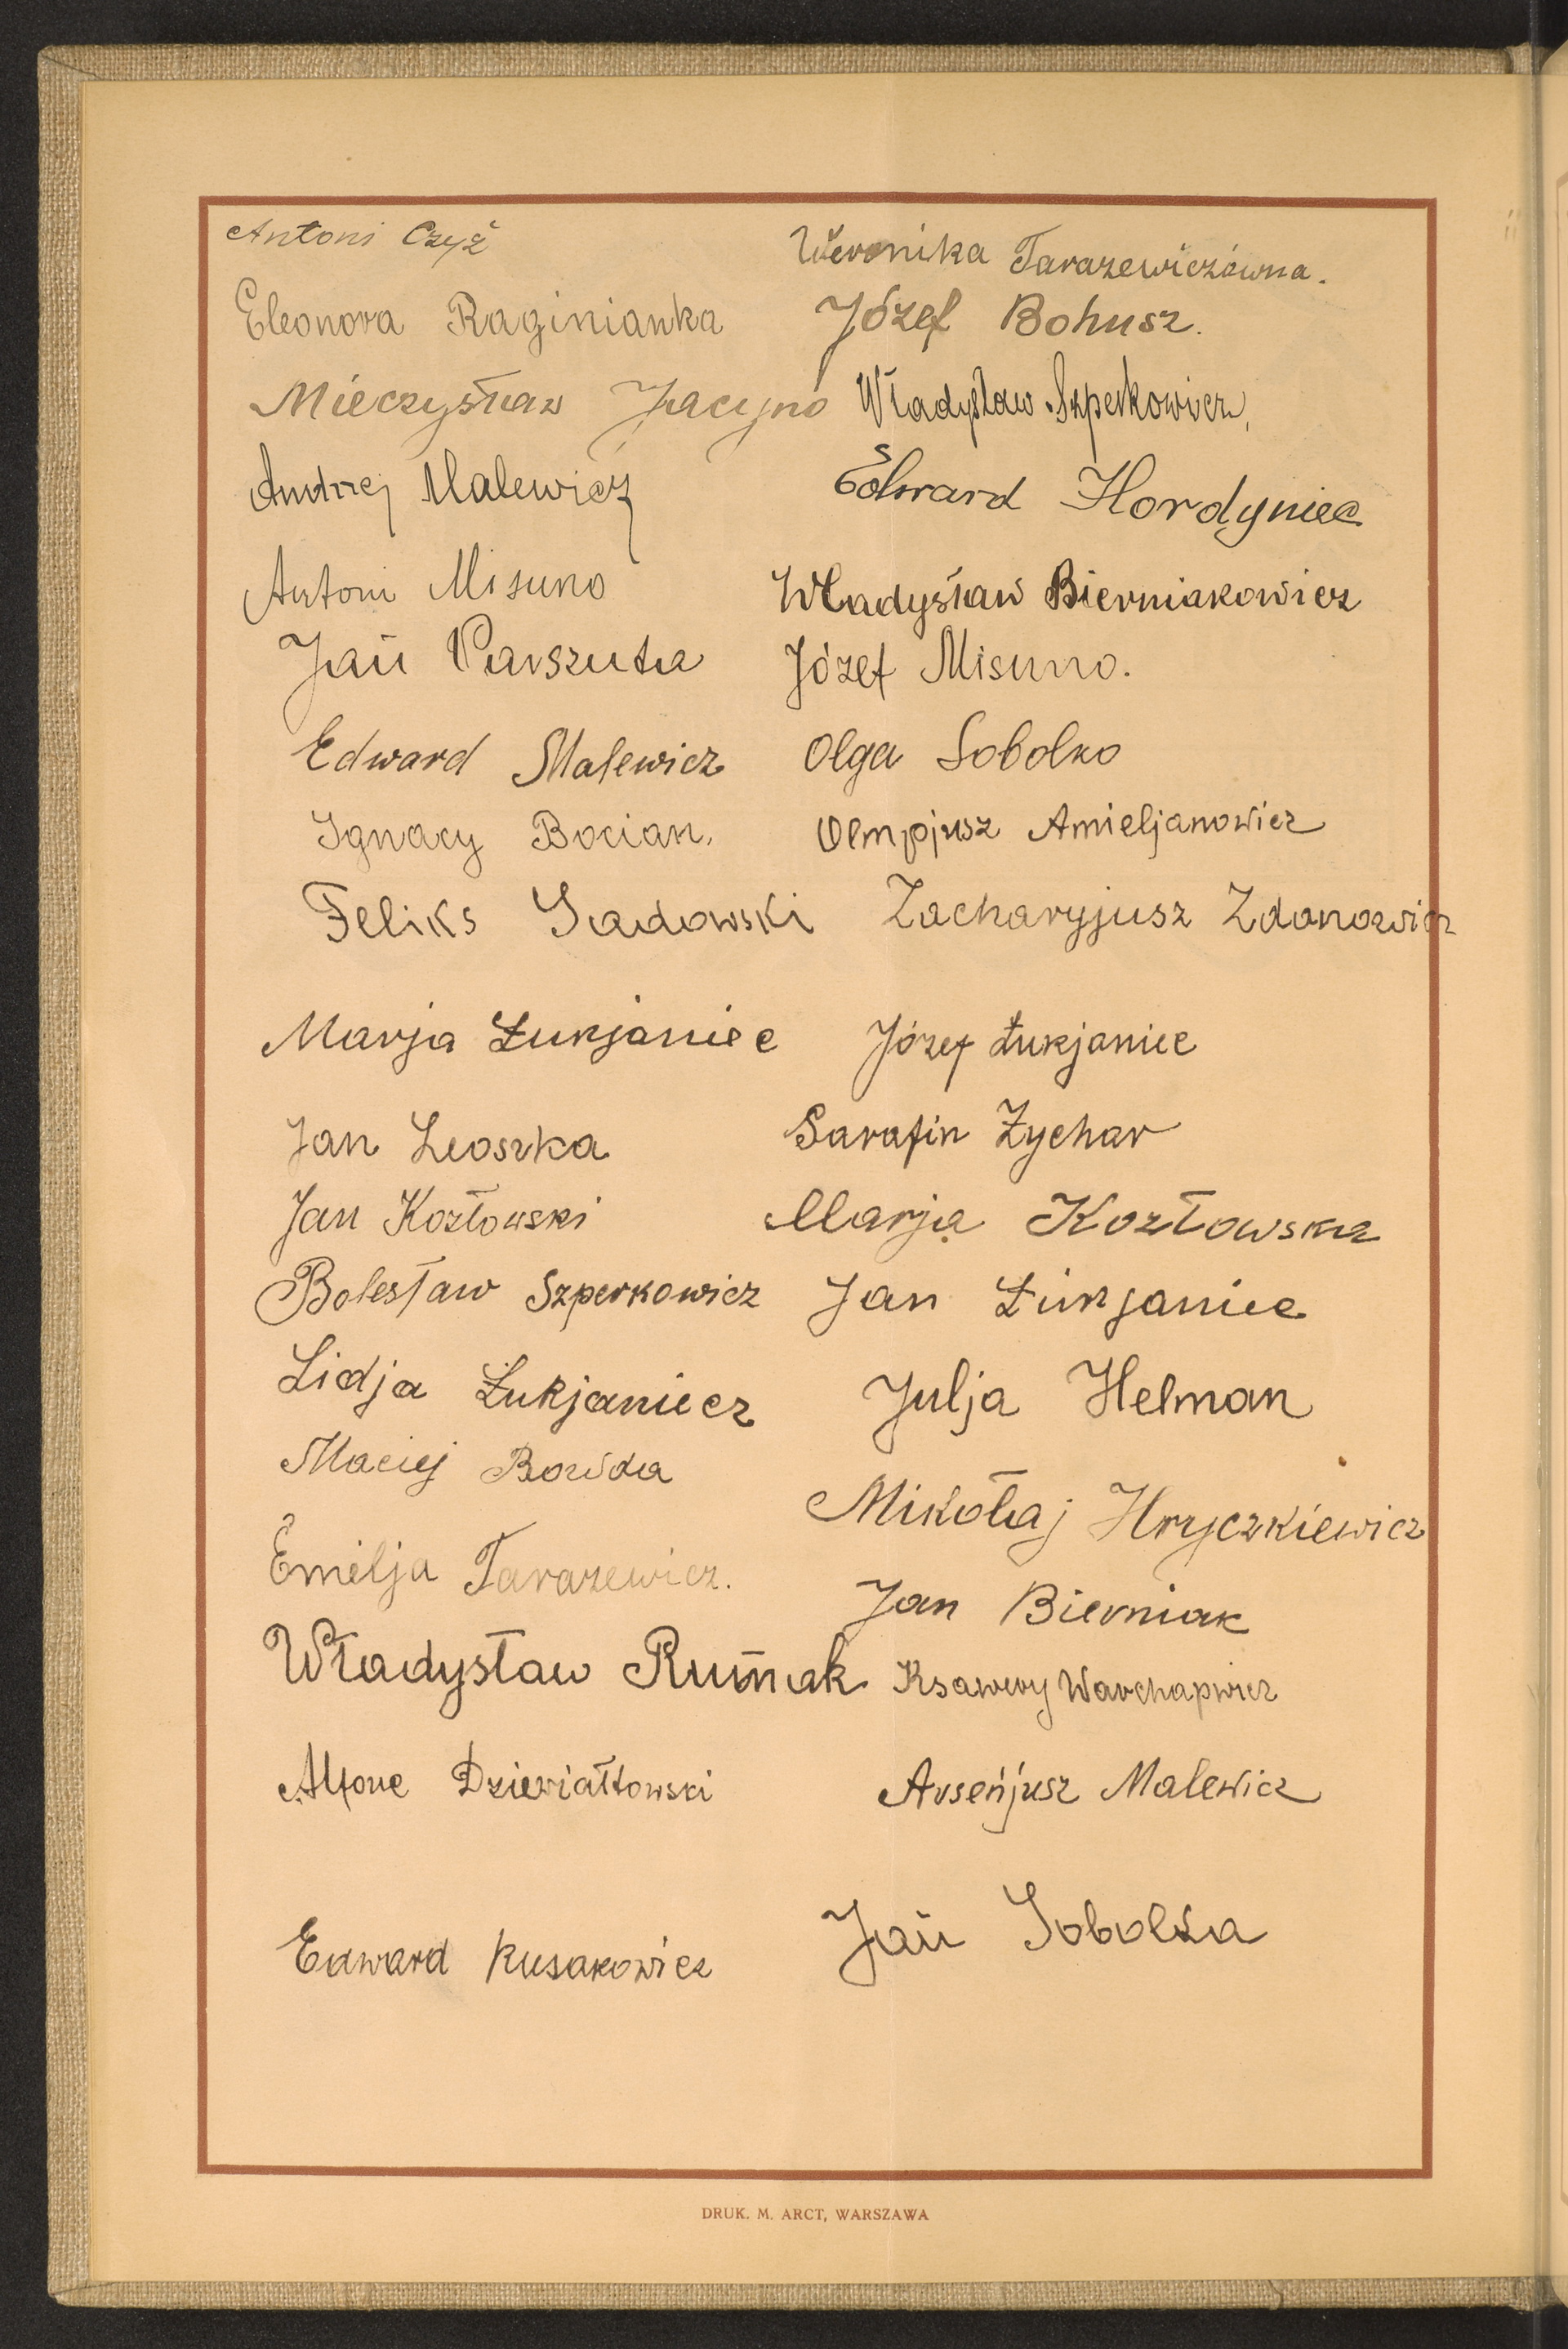 Antoni Czyż
Weronika Tarazewiczówna.
Eleonora Raginianka
Józef Bohusz.
Mieczysław Jacyno
Władysław Szperkowicz,
Andrzej Malewicz
Edward Hordyniec
Antoni Misuno
Władysław Bierniakowicz
Jan Parszuta
Józef Misuno.
Edward Malewicz
Olga Sobolko
Ignacy Bocian,
Olmpjusz Amieljanowicz
Feliks Sadowski
Zacharyjusz Zdanowicz
Marja Łukjaniec
Józef Łukjaniec
Jan Leoszka
Sarafin Zychar
Jan Kozłowski
Marja Kozłowska
Bolesław Szperkowicz
Jan Łukjaniec
Lidja Łukjaniecz
Julja Helman
Maciej Bowda
Mikołaj Hryczkiewicz
Emilja Tarazewicz.
Jan Bierniak
Władysław Rumak
Ksawery Warchapwicz
Alfone Dziewiałtowski
Arseńjusz Malewicz
Edward Kusakowicz
Jan Sobolka
DRUK. M. ARCT, WARSZAWA